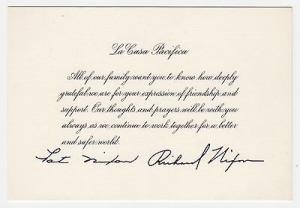 La Casa Pacifica
All of our family want you to know how deeply
grateful we are for your expression of friendship and
support. Our thoughts and prayers will be with you
always as we continue to work together for a better
and safer world.
Pat Nixon Richard Nixon